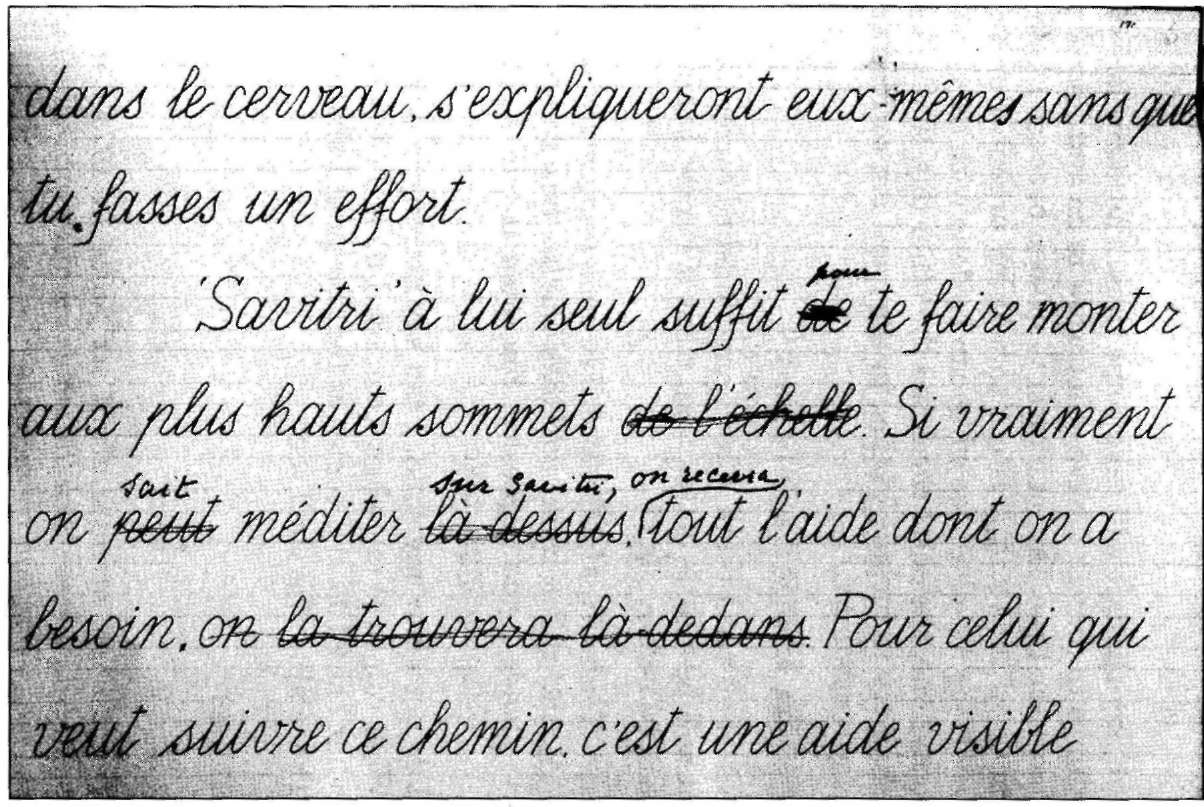 dans le cerveau, s'expliqueront eux-mêmes sans que
tu fasses un effort.
pour
'Savitri' à lui seul suffit de te faire monter
aux plus hauts sommets de l'échelle. Si vraiment
sait sur Savitri, on recevra
on peut méditer là-dessus, tout l'aide dont on a
besoin, on la trouvera là-dedans. Pour celui qui
veut suivre ce chemin, c'est une aide visible